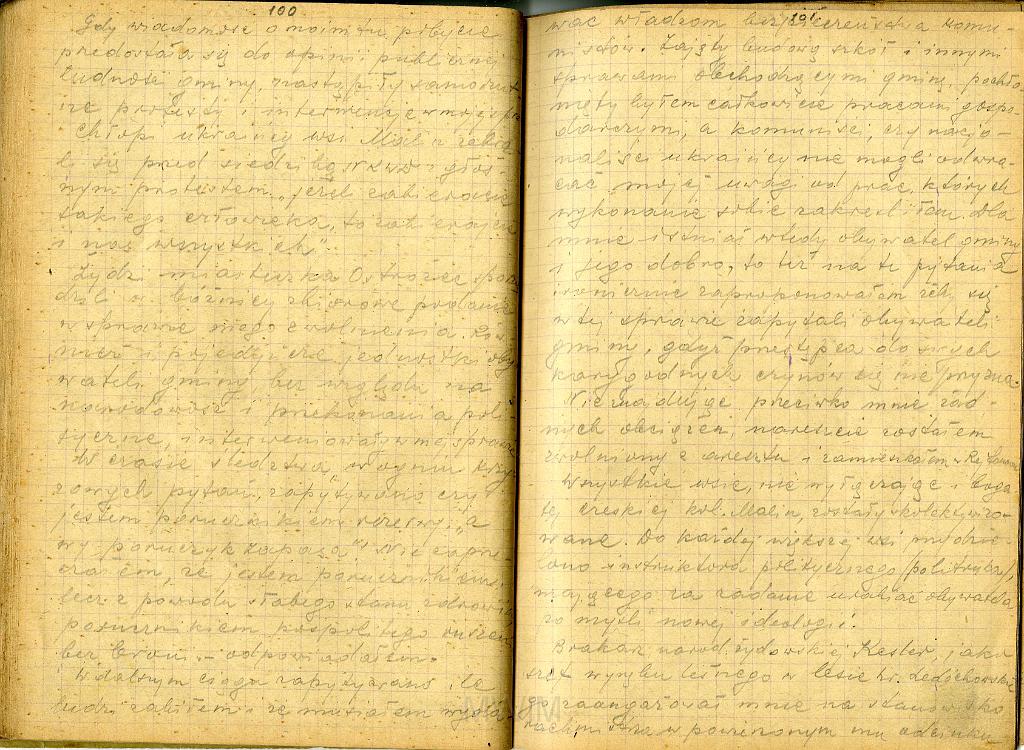 100
Gdy wiadomość o moim tu pobycie
przedostała się do opinii publicznej
ludność gminy, nastąpiły samorzut
ne protesty i interwencje w mojej spra
chłopi ukraińcy wsi Malin zebra
li się przed siedzibą NKWD i głoś-
nym protestem, "jeżeli zabieracie
takiego człowieka, to zabierajcie
i nas wszystkich".
Żydzi miasteczka Ostrożec, sporzą
dzili w bóżnicy zbiorowe podanie
w sprawie mego zwolnienia. Rów
nież i pojedyńcze jednostki oby
wateli gminy, bez względu na
narodowość i przekonania poli-
tyczne, interweniowały w mej sprawie
W czasie śledztwa w ogniu krzy
żowych pytań, zapytywano czy
jestem porucznikiem rezerwy, "a
wy poruczyk zapasa" Nie zaprze
czałem, że jestem porucznikiem
lecz z powodu słabego stanu zdrowia
porucznikiem pospolitego ruszen
bez broni. - odpowiadałem.
W dalszym ciągu zapytywano ile
ludzi zabiłem i że musiałem wysłu
101
wać władzom bezpieczeństwa komu-
nistów. Zajęty budową szkół i innymi
sprawami obchodzącymi gminę, pochło
nięty byłem całkowicie pracami gospo
darczymi, a komuniści, czy nacjo-
naliści ukraińcy nie mogli odwra-
cać mojej uwagi od prac, których
wykonanie sobie zakreśliłem. Dla
mnie istniał wtedy obywatel gminy
i jego dobro, to też na te pytania
ironicznie zaproponowałem żeby się
w tej sprawie zapytali obywateli
gminy, gdyż przestępca do swych
karygodnych czynów się nie przyzna.
Nie znajdując przeciwko mnie żad-
nych obciążeń, nareszcie zostałem
zwolniony z aresztu i zamieszkałem w
Wszystkie wsie, nie wyłączając i boga
tej czeskiej kol. Malin, zostały skolektywizo-
wane. Do każdej większej wsi przydzie-
lono instruktora politycznego /politruka/,
mającego za zadanie urabiać obywatela
po myśli nowej ideologii.
Brakarz narod. żydowskiej Kesler, jako
szef wyrębu leśnego w lesie hr. Ledóchowskie
go zaangażował mnie na stanowisko
rachmistrza w powierzonym mu odcinku